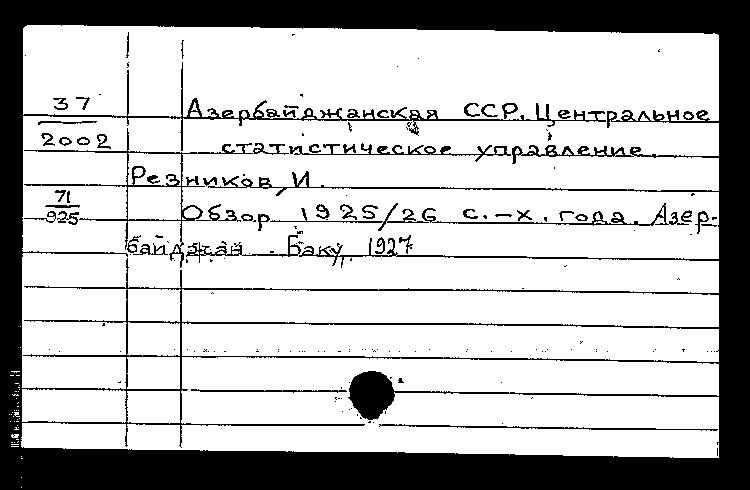 37 Азербайджанская ССР. Центральное
2002 статистическое управление.
Резников, И.
71 Обзор 1925/26 с.-х. года. Азер-
925 байджан. Баку, 1927